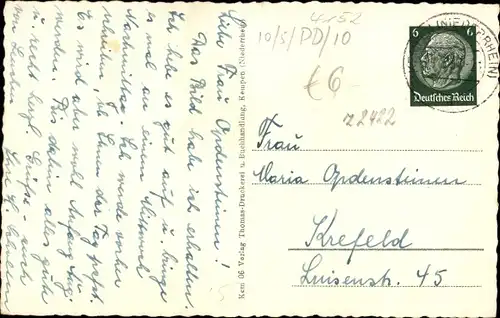 Liebe Frau Opdensteinen!
Das Bild habe ich erhalten.
Ich hebe es gut auf u. bringe
es mal an einem Mittwoch
Nachmittag. Ich werde vorher
schreiben, ob Ihnen der Tag passt.
Es wird aber wohl Anfang Aug.
werden. Bis dahin alles gute
u. recht herzl. Grüsse, auch
von
Kem 06 Verlag Thomas-Druckerei u. Buchhandlung, Kempen (Niederrhein)
4-52
10/5/PD/10
€6-
z2422
6 6
Deutsches Reich
(NIEDERRHEIN)
Frau
Maria Opdensteinen
Krefeld
Luisenstr. 45